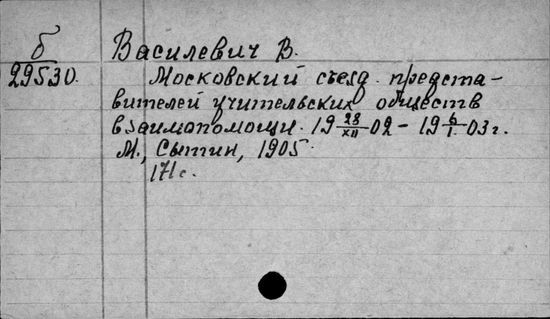 б
29530.
Василевич В.
Московский съезд представителей учительских обществ
взаимопомощи. 19 28/XII 02 - 19 6/I 03 г.
М., Сытин, 1905.
171 с.